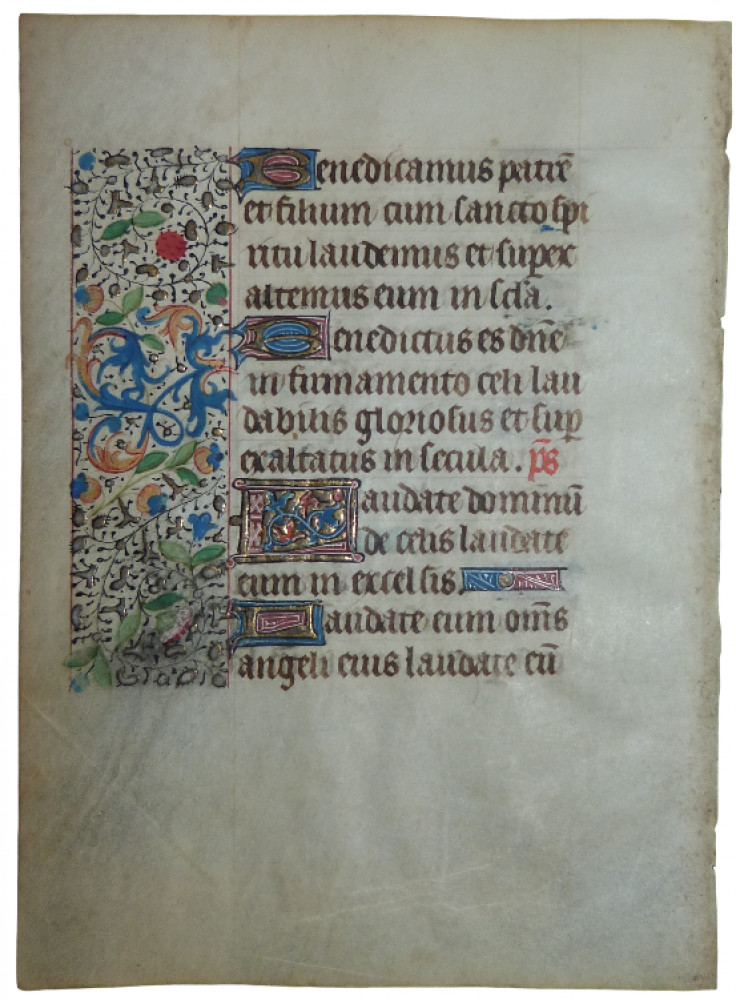 Benedicamus patrē
et filium cum sancto spi
ritu laudemus et super
altemus eum in scla.
Benedictus es dn̄e
in firmamento celi lau
dabilis gloriosus et sup
exaltatus in secula. p̄s
Laudate dominū
de celis laudate
eum in excelsis.
Laudate eum om̄s
angeli eius laudate eū